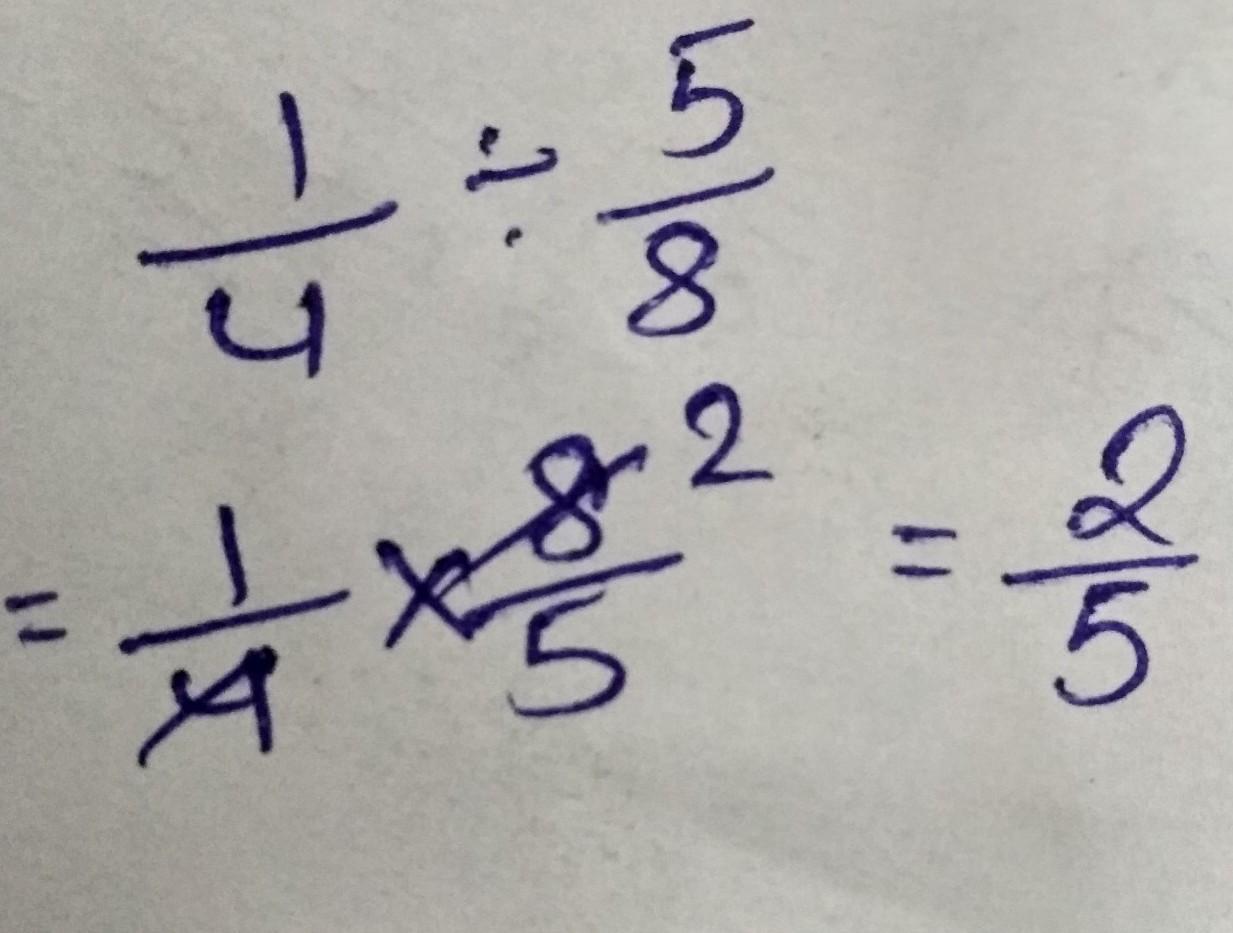 1/4 ÷ 5/8
= 1/4 × 8/5 2 = 2/5